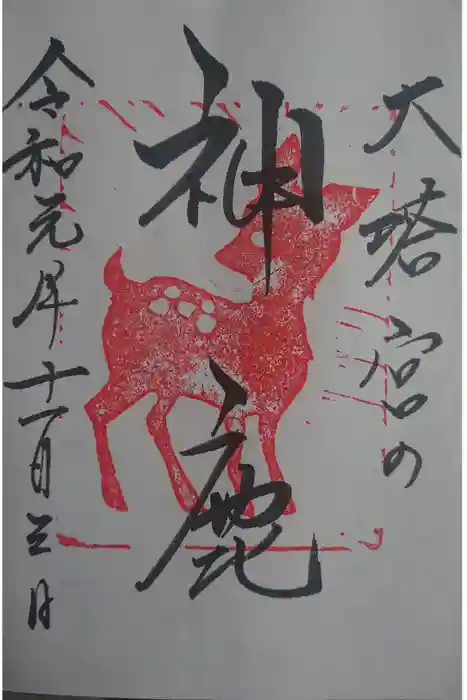 大塔宮の
神鹿
令和元年十一月三日